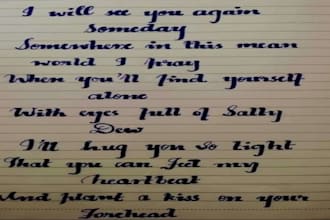 I will see you again
Someday
Somewhere in this mean
world I pray
When you'll find yourself
alone
With eyes full of Salty
Dew
I'll hug you so tight
That you can Jeel my
heartbeat
And plant a kiss on your
Forehead